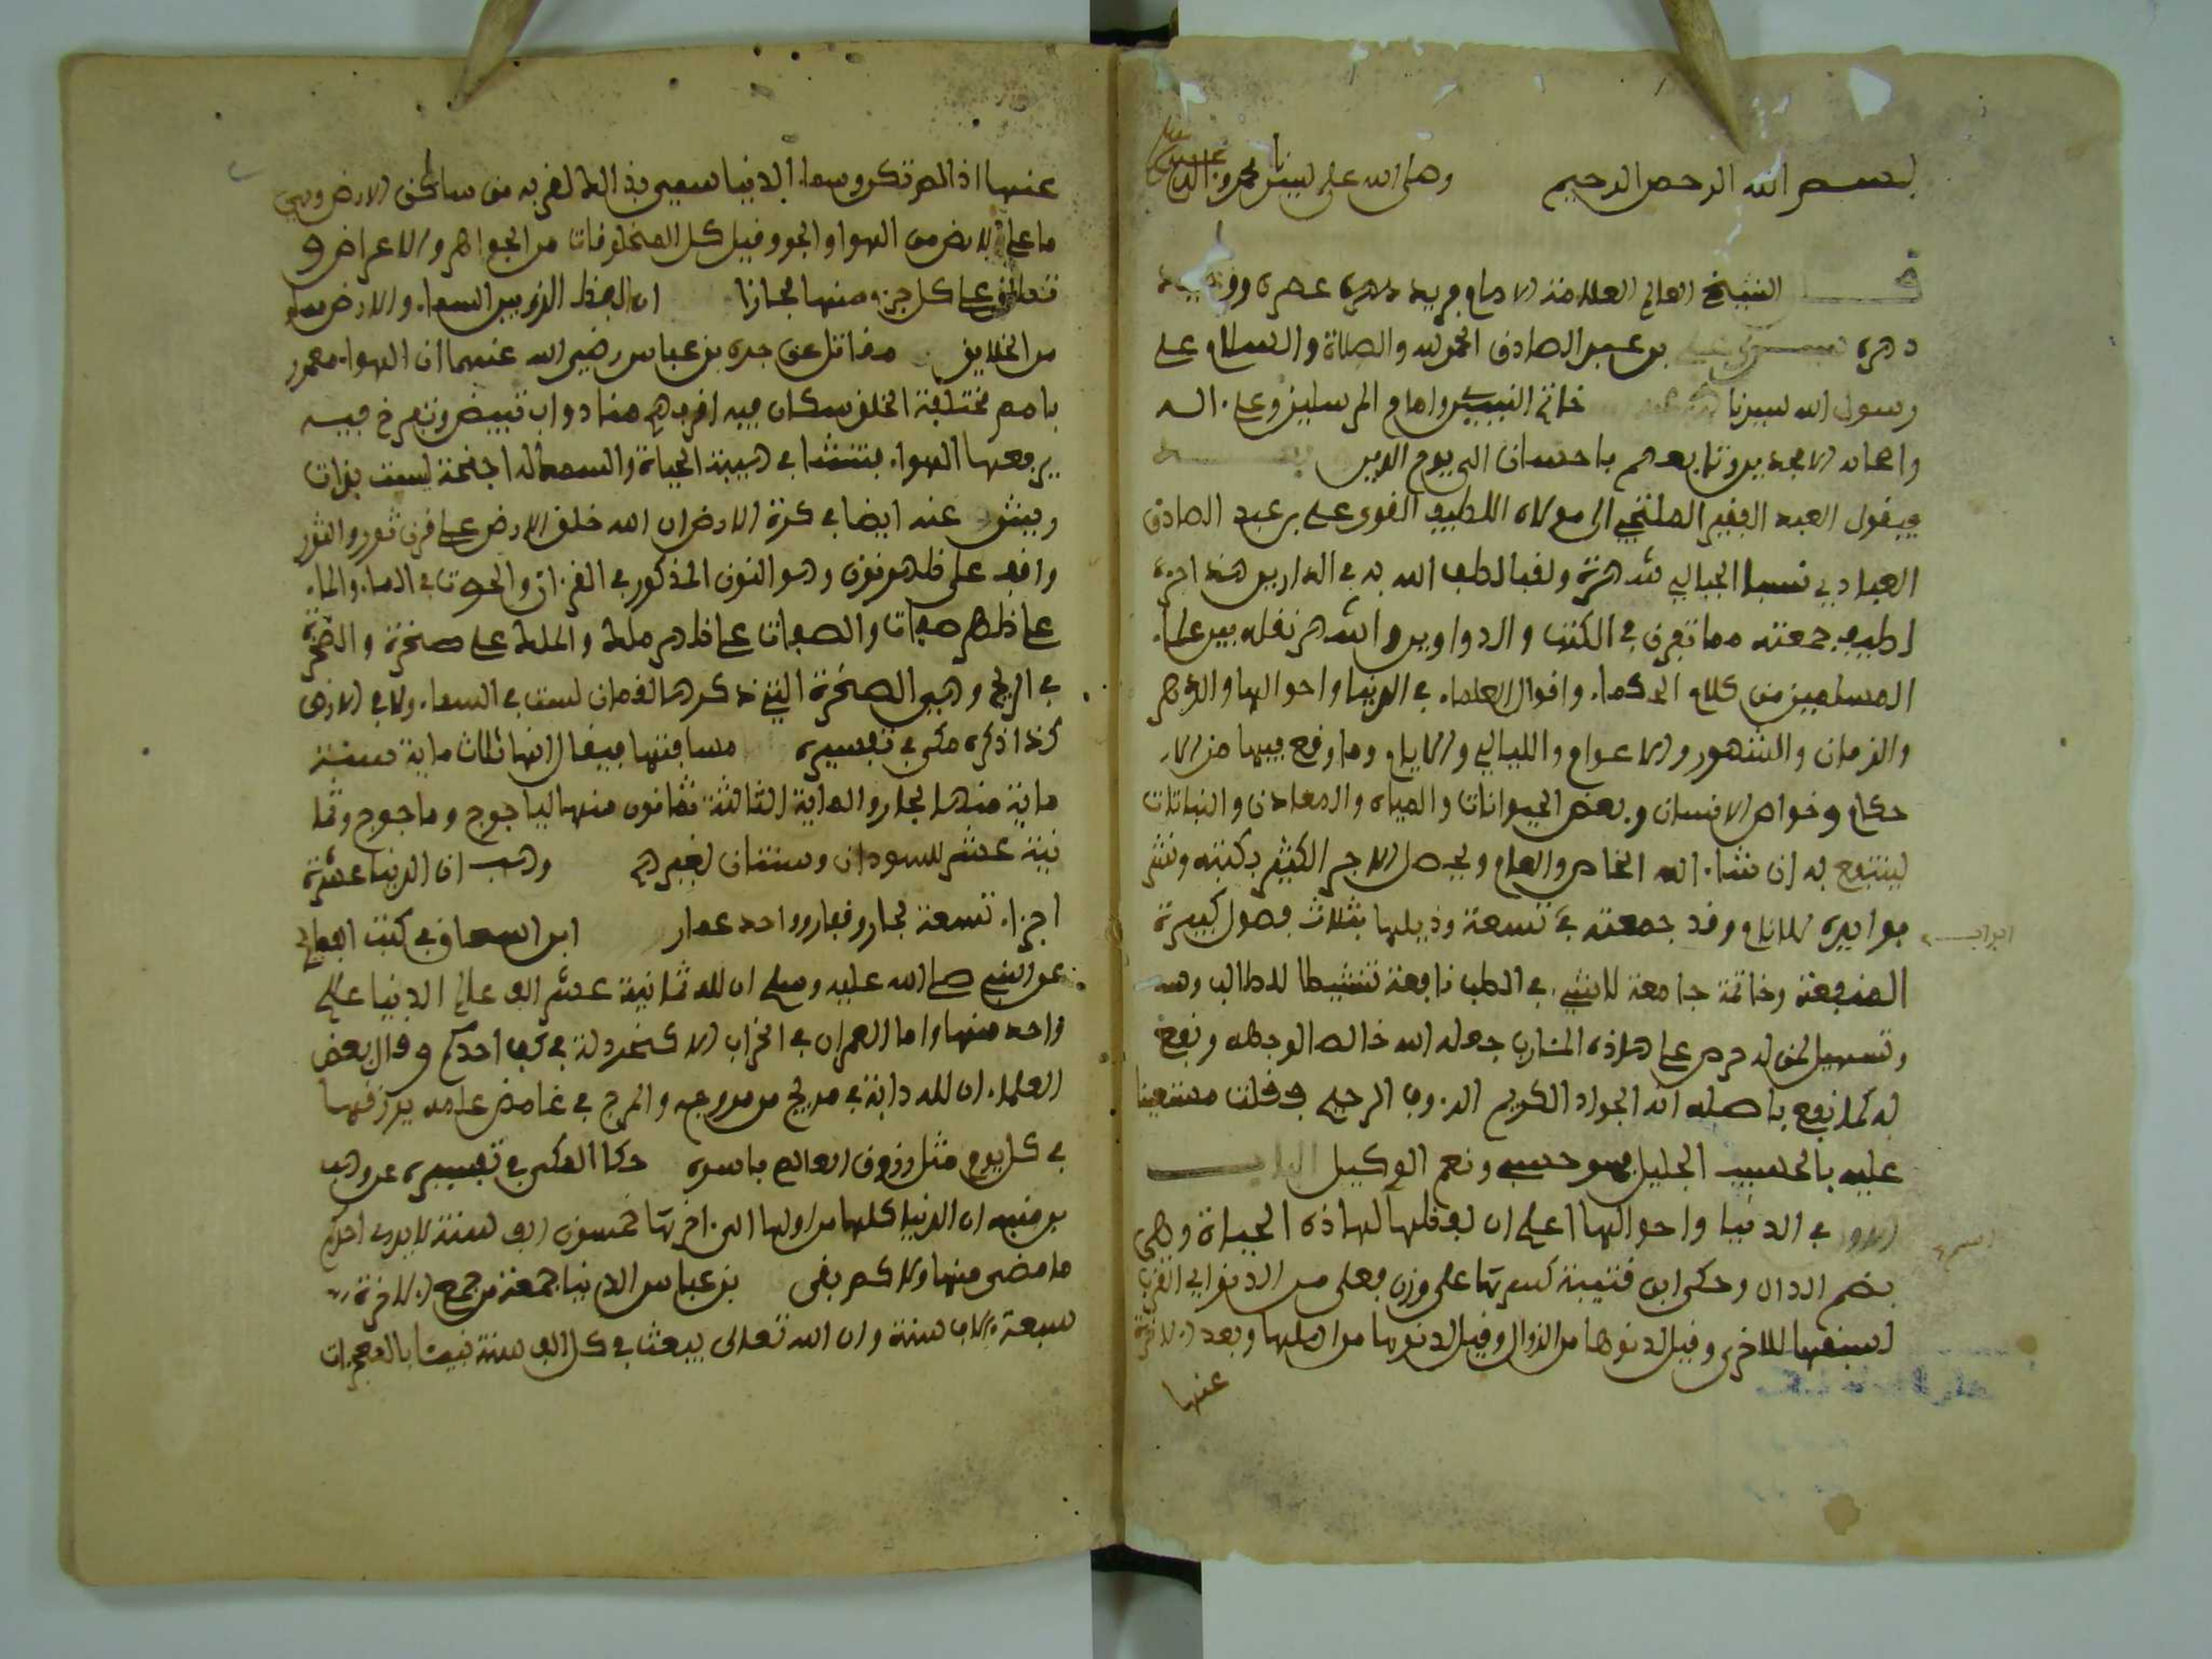 بسم الله الرحمن الرحيم وصلى الله على سيدنا محمد وآله
قال الشيخ العالم العلامة الامام فريد عصره ووحيد
دهره بن عبد الصادق الحمد لله والصلاة والسلام على
رسول الله سيدنا خاتم النبيين وامام المرسلين وعلى اله
واصحابه الامجدين وتابعهم باحسان الى يوم الدين
فيقول العبد الفقير الملتجي الى مولاه اللطيف القوي علي بن عبد الصادق
العبادي نسبا الجبالي شهرة ولقبا لطف الله به في الدارين هذا جزء
لطيف جمعته مما تفرق في الكتب والدواوين واشتهر نقله بين علماء
المسلمين من كلام الحكماء واقوال العلماء في الدنيا واحوالها والدهر
والزمان والشهور والاعوام والليالي والايام وما وقع فيها من الا
حكام وخواص الانسان وبعض الحيوانات والمياه والمعادن والنباتات
لينتفع به ان شاء الله الخاص والعام ويحصل الاجر الكثير بكتبه ونشر
فوائده للانام وقد جمعته في تسعة وذيلها بثلاث فصول كبيرة
ابواب
المنفعة وخاتمة جامعة لاشيء في الطب نافعة تنشيطا للطالب
وتسهيل لمن له حرص على هذه المئارب جعله الله خالصا لوجهه ونفع
به كما نفع باصله انه الجواد الكريم الرءوف الرحيم فقلت مستعينا
عليه بالحسيب الجليل فهو حسبي ونعم الوكيل الباب
الاول في الدنيا واحوالها اعلم ان لفظها لهاذه الحياة وهي
بضم الدال وحكى ابن قتيبة كسرتها على وزن فعلى من الدنو اي القرب
لسبقها للاخرى وقيل لدنوها من الزوال وقيل لدنوها من اهلها وبعد الاخرة
عنها
عنها اذ المر تكن وسماء الدنيا سميى بذالك لقربه من ساكن الارض وهي
ما على الارض من الهواء والجو وقيل كل المخلوقات من الجواهر والاعراض و
تطلق على كل جزء منها مجازا ان الفضاء الذي بين السماء والارض مملو
من الخلايق مقاتل عن جده بن عباس رضي الله عنهما ان الهواء معمور
بامم مختلفة الخلق سكان فيه اقربهم منا دواب تبيض وتفرخ فيه
يرفعها الهواء فتنشا في هيبة الحياة والسمك له اجنحة ليست بذات
وبيش عنه ايضا في كرة الارض ان الله خلق الارض على قرن ثور والثور
واقف على ظهر نون وهو النون المذكور في القرءان والحوت في الماء والماء
على ظهر صفات والصفات على ظهر ملك والملك على صخرة والصخرة
في الريح وهي الصخرة التي ذكرها لقمان ليست في السماء ولا في الارض
كذا ذكره مكي في تفسيره مسافتها فيقال انها ثلاث ماية سنة
ماية منها بحار والماية الثالثة ثمانون منها لياجوج وماجوج وثما
نية عشر للسودان وسنتان لغيرهم وهب ان الدنيا عشرة
اجزاء تسعة بحار وقفار وواحد عمار ابن السماك في كتب
عن النبي صلى الله عليه وسلم ان لله ثمانية عشر الف عالم الدنيا عالم
واحد منها وما العمران في الخراب الا كخردلة في كف احدكم وقال بعض
العلماء ان لله دابة في مرج من مروجه والمرج في غامض علمه يرزقها
في كل يوم مثل رزق العالم باسره حكا المكي في تفسيره عن وهب
بن منبه ان الدنيا كلها من اولها الى اخرها خمسون الف سنة لا يدري احدكم
ما مضى منها ولا كم بقى بن عباس الدنيا جمعة من جمع الاخرة
سبعة الاف سنة وان الله تعالى يبعث في كل الف سنة نبيئا بالمعجزات